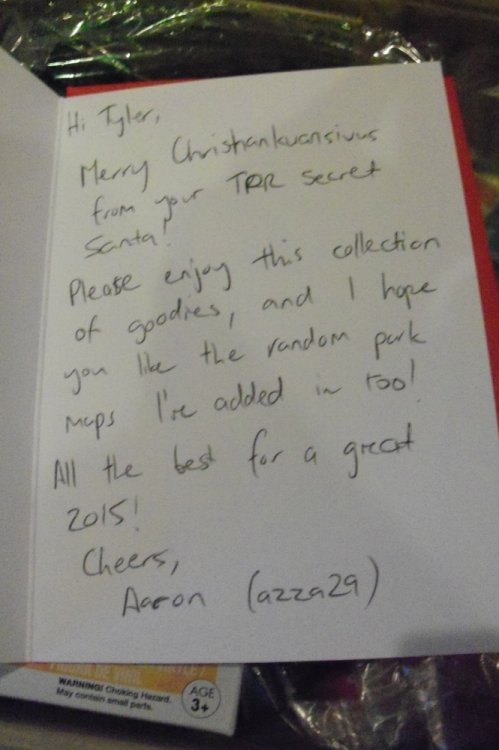 Hi Tyler,
Merry Christiankwansivus
from your TPR secret
Santa!
Please enjoy this collection
of goodies, and I hope
you like the random park
maps I've added in too!
All the best for a great
2015!
Cheers,
Aaron (azza29)
WARNING! Choking Hazard.
May contain small parts.
AGE
3+